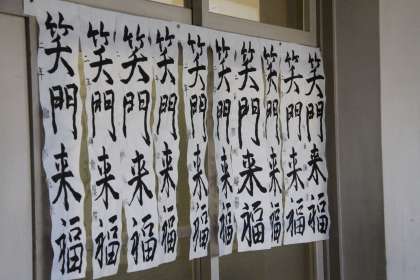 笑門来福
笑門来福
笑門来福
笑門来福
笑門来福
笑門来福
笑門来福
笑門来福
笑門来福
笑門来福